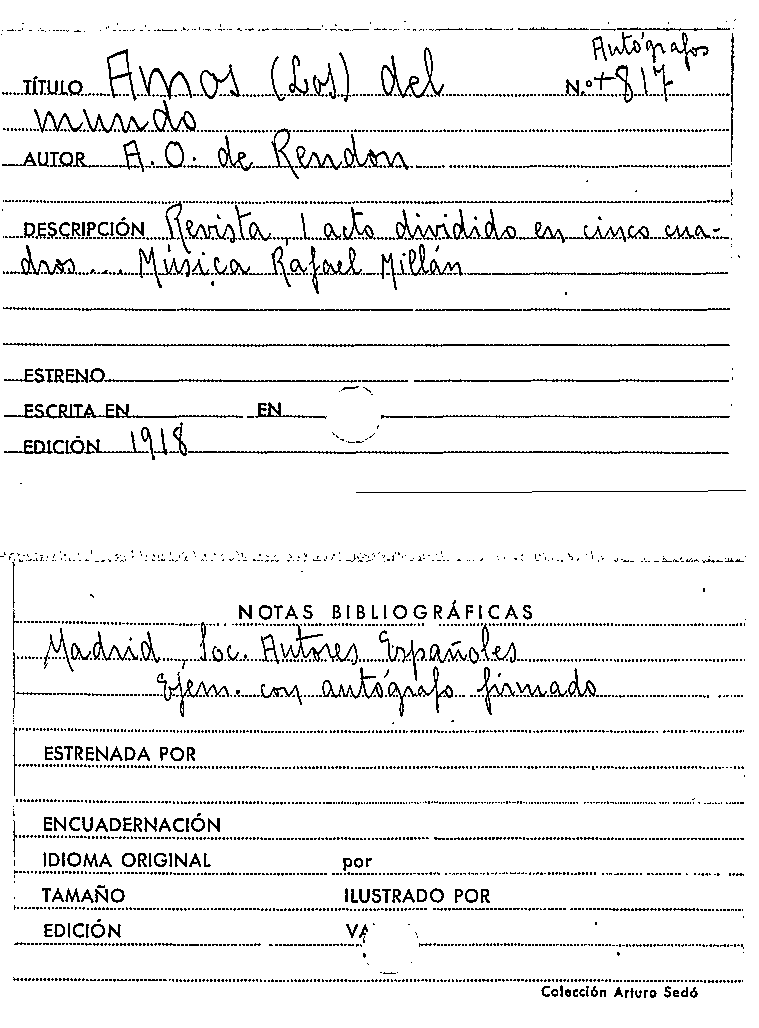 Autógrafos
TÍTULO Amos (Los) del N.º +817
mundo
AUTOR A. O. de Rendon
DESCRIPCIÓN Revista, 1 acto dividido en cinco cua-
dros... Música Rafael Millán
ESTRENO
ESCRITA EN EN
EDICIÓN 1918
NOTAS BIBLIOGRÁFICAS
Madrid, Soc. Autores Españoles
Ejem. con autógrafo firmado
ESTRENADA POR
ENCUADERNACIÓN
IDIOMA ORIGINAL por
TAMAÑO ILUSTRADO POR
EDICIÓN
Colección Arturo Sedó